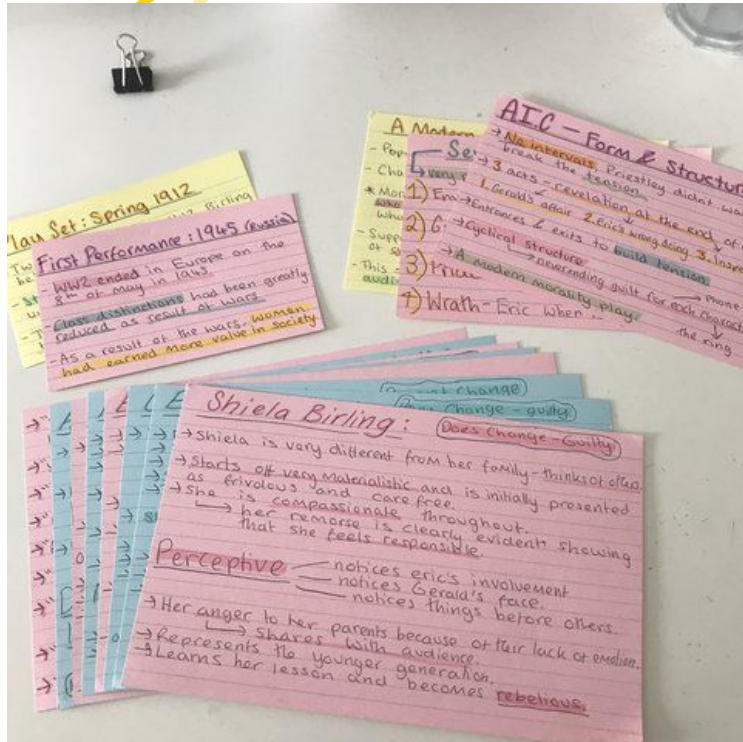 Play Set: Spring 1912
Birling
First Performance: 1945 (Russia)
- WW2 ended in Europe on the
8th of May in 1945.
- Class distinctions had been greatly
reduced as result of wars.
- As a result of the wars, women
had earned more value in society
A Modern
- Pop
- Cha
* Mor
who
- Supp
of s
- This
audi
Se
very
1) Env
2) G
3)
4) Wrath - Eric when
A.I.C - Form & Structure
→ No intervals Priestley didn't wa
break the tension.
→ 3 acts - revelation at the end of
1. Gerald's affair 2. Eric's wrong doing 3. Inspe
→ Entrances & exits to build tension.
→ Cyclical structure
→ neverending guilt for each charact
→ A modern morality play.
Phone
the ring
Change)
Does Change - guilty
Shiela Birling:
Does Change - Guilty
→ Shiela is very different from her family - thinks of others.
→ Starts off very materialistic and is initially presented
as frivolous and care free.
→ She is compassionate throughout.
→ her remorse is clearly evident showing
that she feels responsible.
Perceptive
notices eric's involvement
notices Gerald's face.
notices things before others.
→ Her anger to her parents because of their lack of emotion.
→ Shares with audience.
→ Represents the younger generation.
→ Learns her lesson and becomes rebelious.